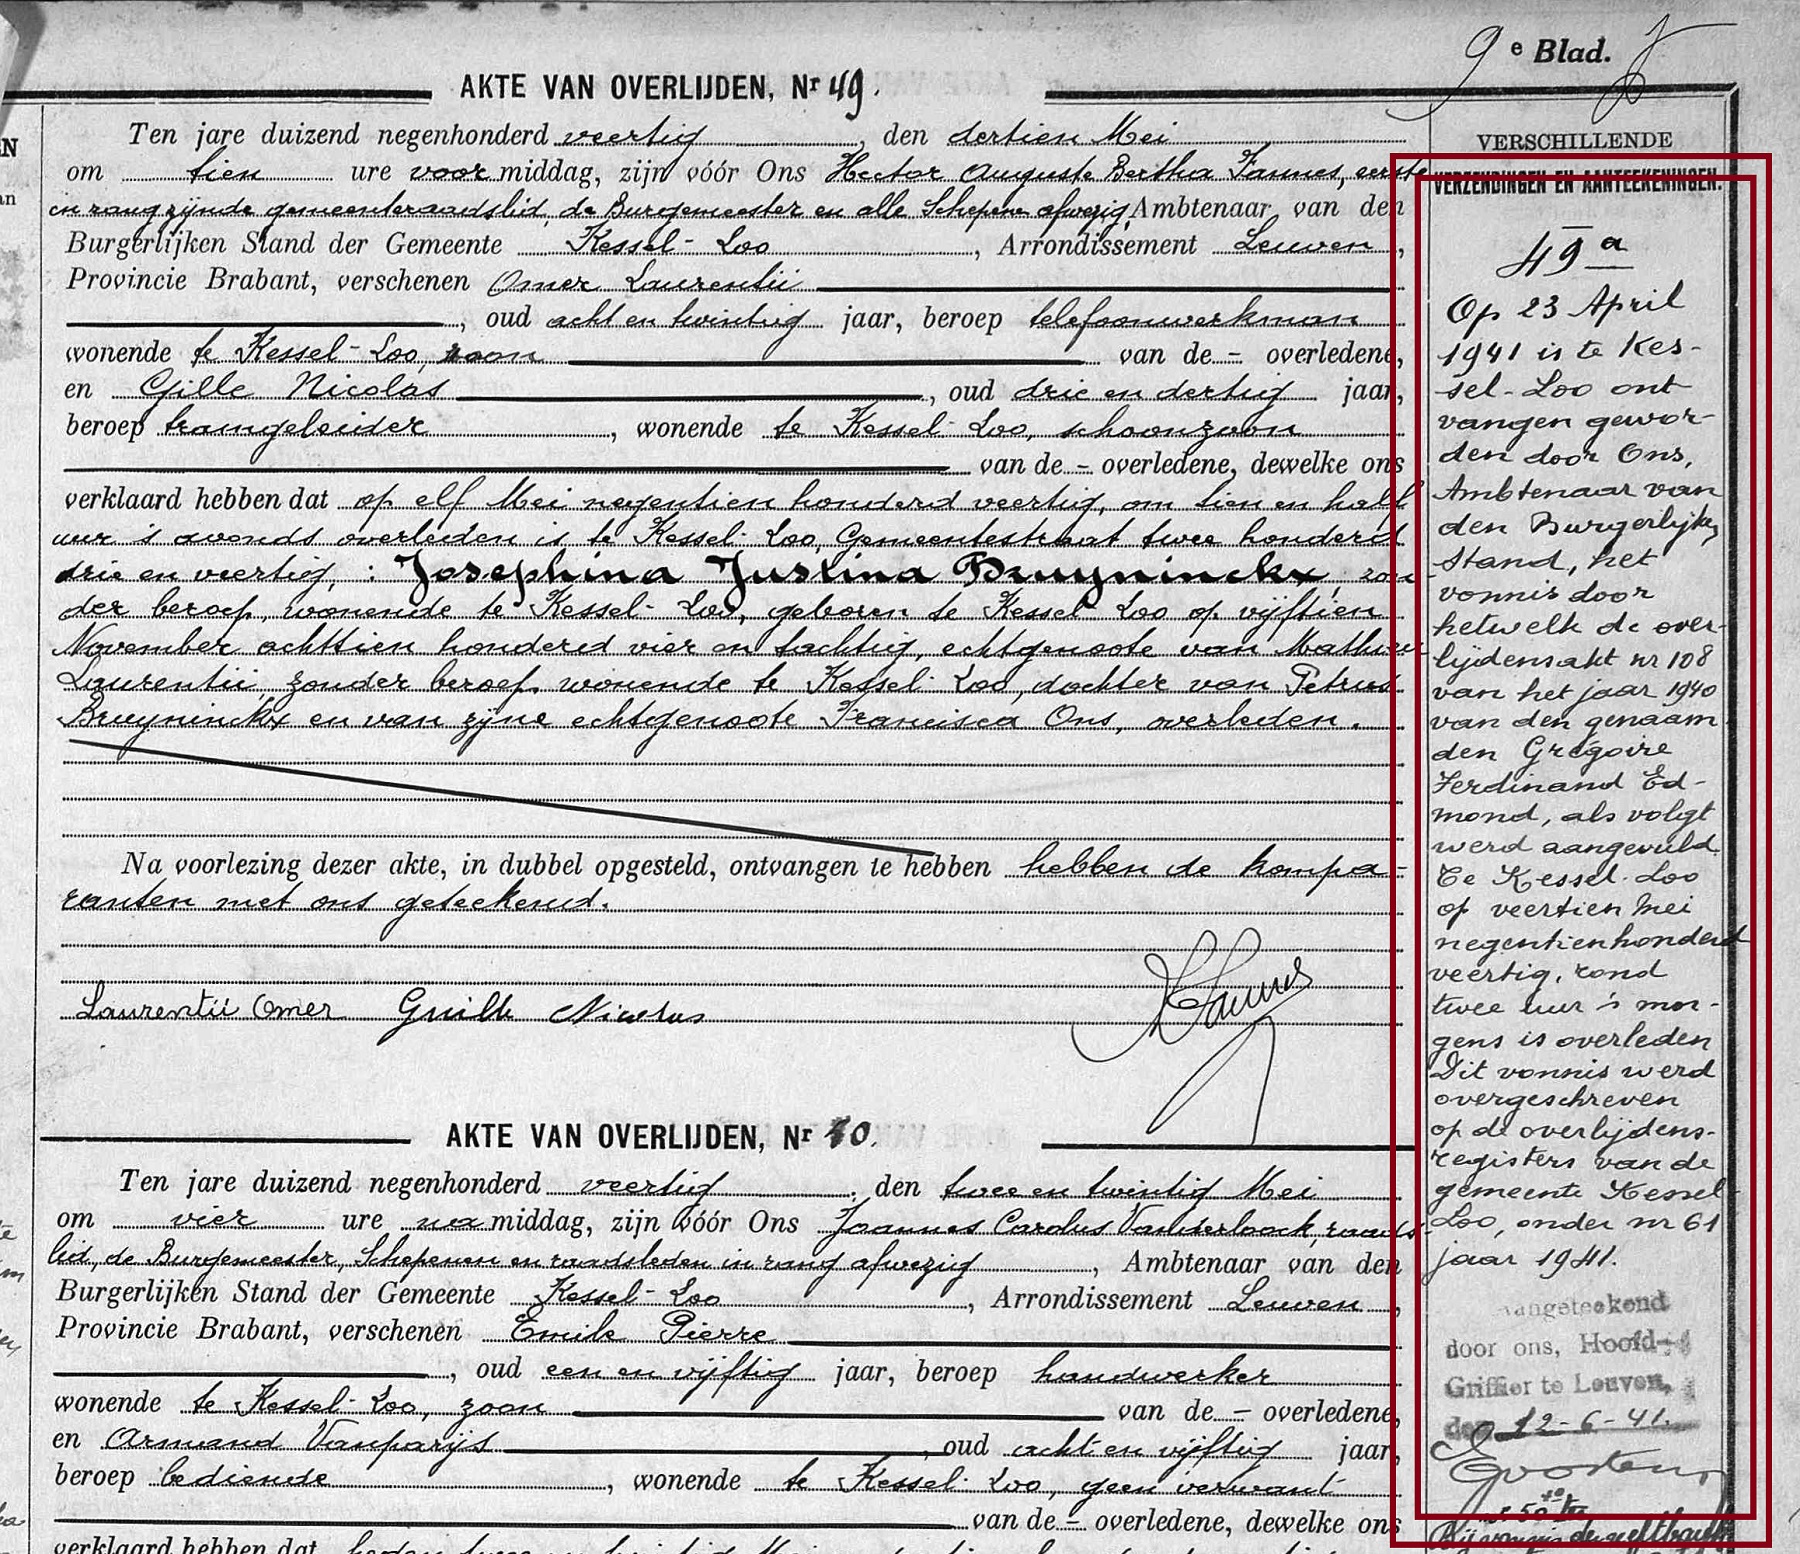 9 e Blad.
AKTE VAN OVERLIJDEN, Nr 49.
Ten jare duizend negenhonderd veertig, den dertien Mei
om tien ure voor middag, zijn vóór Ons Hector Auguste Bertha Fannes, eerste
in rang zijnde gemeenteraadslid, de Burgemeester en alle Schepene afwezig, Ambtenaar van den
Burgerlijken Stand der Gemeente Kessel-Loo, Arrondissement Leuven,
Provincie Brabant, verschenen Omer Laurentii
, oud acht en twintig jaar, beroep telefoonwerkman
wonende te Kessel-Loo, zoon van de - overledene,
en Gille Nicolas, oud drie en dertig jaar,
beroep tramgeleider, wonende te Kessel-Loo, schoonzoon
van de - overledene, dewelke ons
verklaard hebben dat op elf Mei negentien honderd veertig, om tien en half
uur 's avonds overleden is te Kessel-Loo, Gemeentestraat twee honderd
drie en veertig, : Josephina Justina Bruyninckx, zon-
der beroep, wonende te Kessel-Loo, geboren te Kessel-Loo op vijftien
November achttien honderd vier en tachtig, echtgenoote van
Laurentii, zonder beroep, wonende te Kessel-Loo, dochter van Petrus
Bruyninckx en van zijne echtgenoote Francisca Ons, overleden.
Na voorlezing dezer akte, in dubbel opgesteld, ontvangen te hebben hebben de kompa-
ranten met ons geteekend.
Laurentii Omer Guille Nicolas
AKTE VAN OVERLIJDEN, Nr 50.
Ten jare duizend negenhonderd veertig, den twee en twintig Mei
om vier ure na middag, zijn vóór Ons Joannes Carolus Vanderloock, raads-
lid, de Burgemeester, Schepenen en raadsleden in rang afwezig, Ambtenaar van den
Burgerlijken Stand der Gemeente Kessel-Loo, Arrondissement Leuven,
Provincie Brabant, verschenen Emile Pierre
, oud een en vijftig jaar, beroep handwerker
wonende te Kessel-Loo, zoon van de - overledene,
en Armand Vanparijs, oud acht en vijftig jaar,
beroep bediende, wonende te Kessel-Loo, geen verwant
van de - overledene, dewelke ons
verklaard hebben dat
VERSCHILLENDE
VERZENDINGEN EN AANTEEKENINGEN.
49 a
Op 23 April
1941 is te Kes-
sel-Loo ont
vangen gewor-
den door Ons,
Ambtenaar van
den Burgerlijken
Stand, het
vonnis door
hetwelk de over-
lijdensakt nr 108
van het jaar 1940
van den genaam
den Grégoire
Ferdinand Ed-
mond, als volgt
werd aangevuld.
Te Kessel-Loo
op veertien Mei
negentienhonderd
veertig, rond
twee uur 's mor-
gens is overleden
Dit vonnis werd
overgeschreven
op de overlijdens-
registers van de
gemeente Kessel
Loo, onder nr 61
jaar 1941.
Aangeteekend
door ons, Hoofd-
Griffier te Leuven,
den 12-6-41.